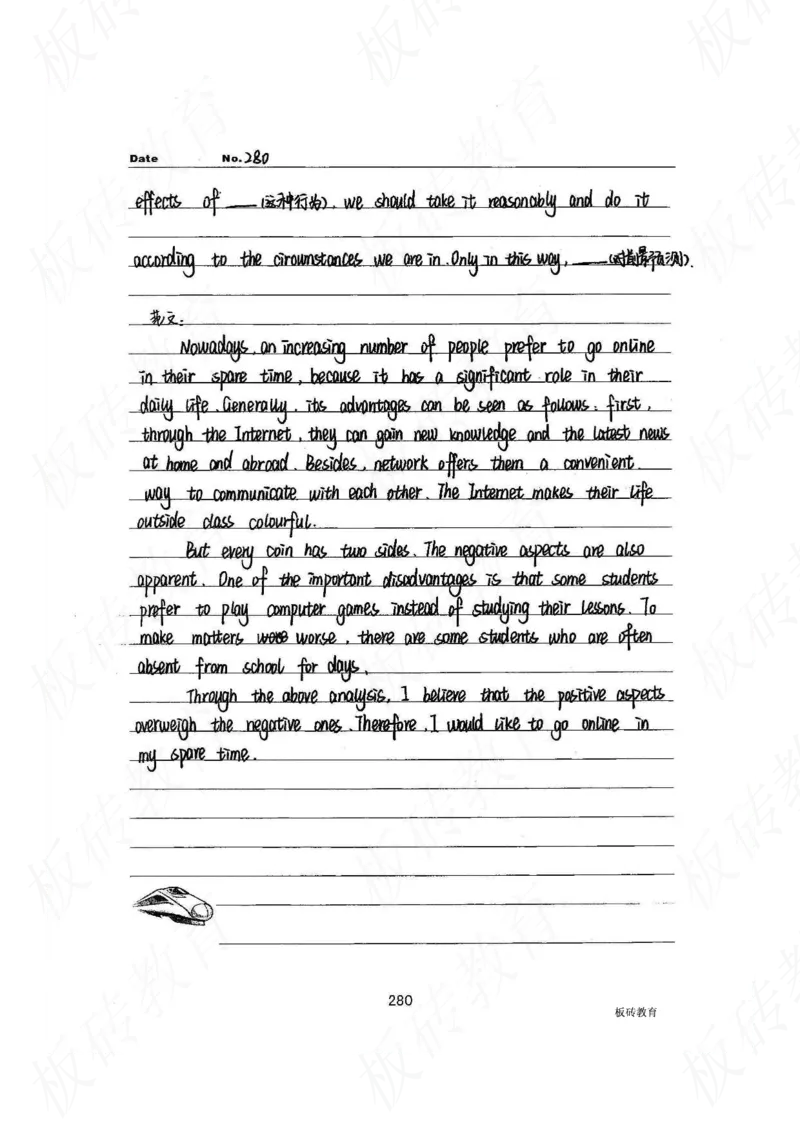 Date No. 280
effects of ——(这种行为), we should take it reasonably and do it
according to the cirowmstances we are in. Only in this way, ——(对前景预测).
范文:
Nowadays, an increasing number of people prefer to go online
in their spare time, because it has a significant role in their
daily life. Generally, its advantages can be seen as follows: first,
through the Internet, they can gain new knowledge and the latest news
at home and abroad. Besides, network offers them a convenient
way to communicate with each other. The Internet makes their life
outside class colourful.
But every coin has two sides. The negative aspects are also
apparent. One of the important disadvantages is that some students
prefer to play computer games instead of studying their lessons. To
make matters worse, there are some students who are often
absent from school for days.
Through the above analysis, I believe that the positive aspects
overweigh the negative ones. Therefore, I would like to go online in
my spare time.
280
板砖教育